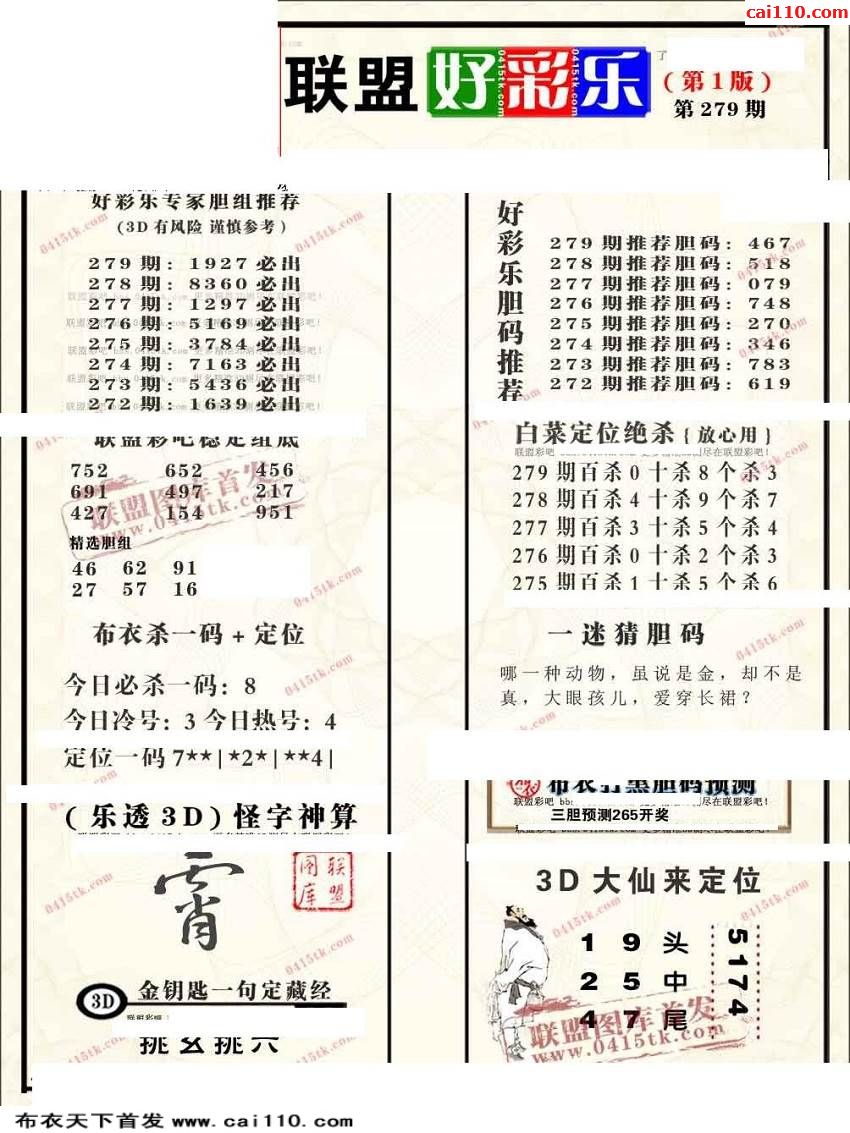 cai110.com
联盟 好彩乐
(第1版)
第279期
好彩乐专家胆组推荐
(3D有风险 谨慎参考)
279期: 1927必出
278期: 8360必出
277期: 1297必出
276期: 5169必出
275期: 3784必出
274期: 7163必出
273期: 5436必出
272期: 1639必出
联盟彩吧稳定组底
752 652 456
691 497 217
427 154 951
联盟图库首发
www.0415tk.com
精选胆组
46 62 91
27 57 16
布衣杀一码+定位
今日必杀一码: 8
今日冷号: 3 今日热号: 4
定位一码 7**|*2*|**4|
(乐透3D)怪字神算
霄
联盟图库
3D 金钥匙一句定藏经
好彩乐胆码推荐
279期推荐胆码: 467
278期推荐胆码: 518
277期推荐胆码: 079
276期推荐胆码: 748
275期推荐胆码: 270
274期推荐胆码: 346
273期推荐胆码: 783
272期推荐胆码: 619
白菜定位绝杀{放心用}
279期百杀0十杀8个杀3
278期百杀4十杀9个杀7
277期百杀3十杀5个杀4
276期百杀0十杀2个杀3
275期百杀1十杀5个杀6
一迷猜胆码
哪一种动物，虽说是金，却不是
真，大眼孩儿，爱穿长裙？
三胆预测265开奖
3D大仙来定位
1 9 头
2 5 中
4 7 尾
5174
联盟图库首发
www.0415tk.com
布衣天下首发 www.cai110.com